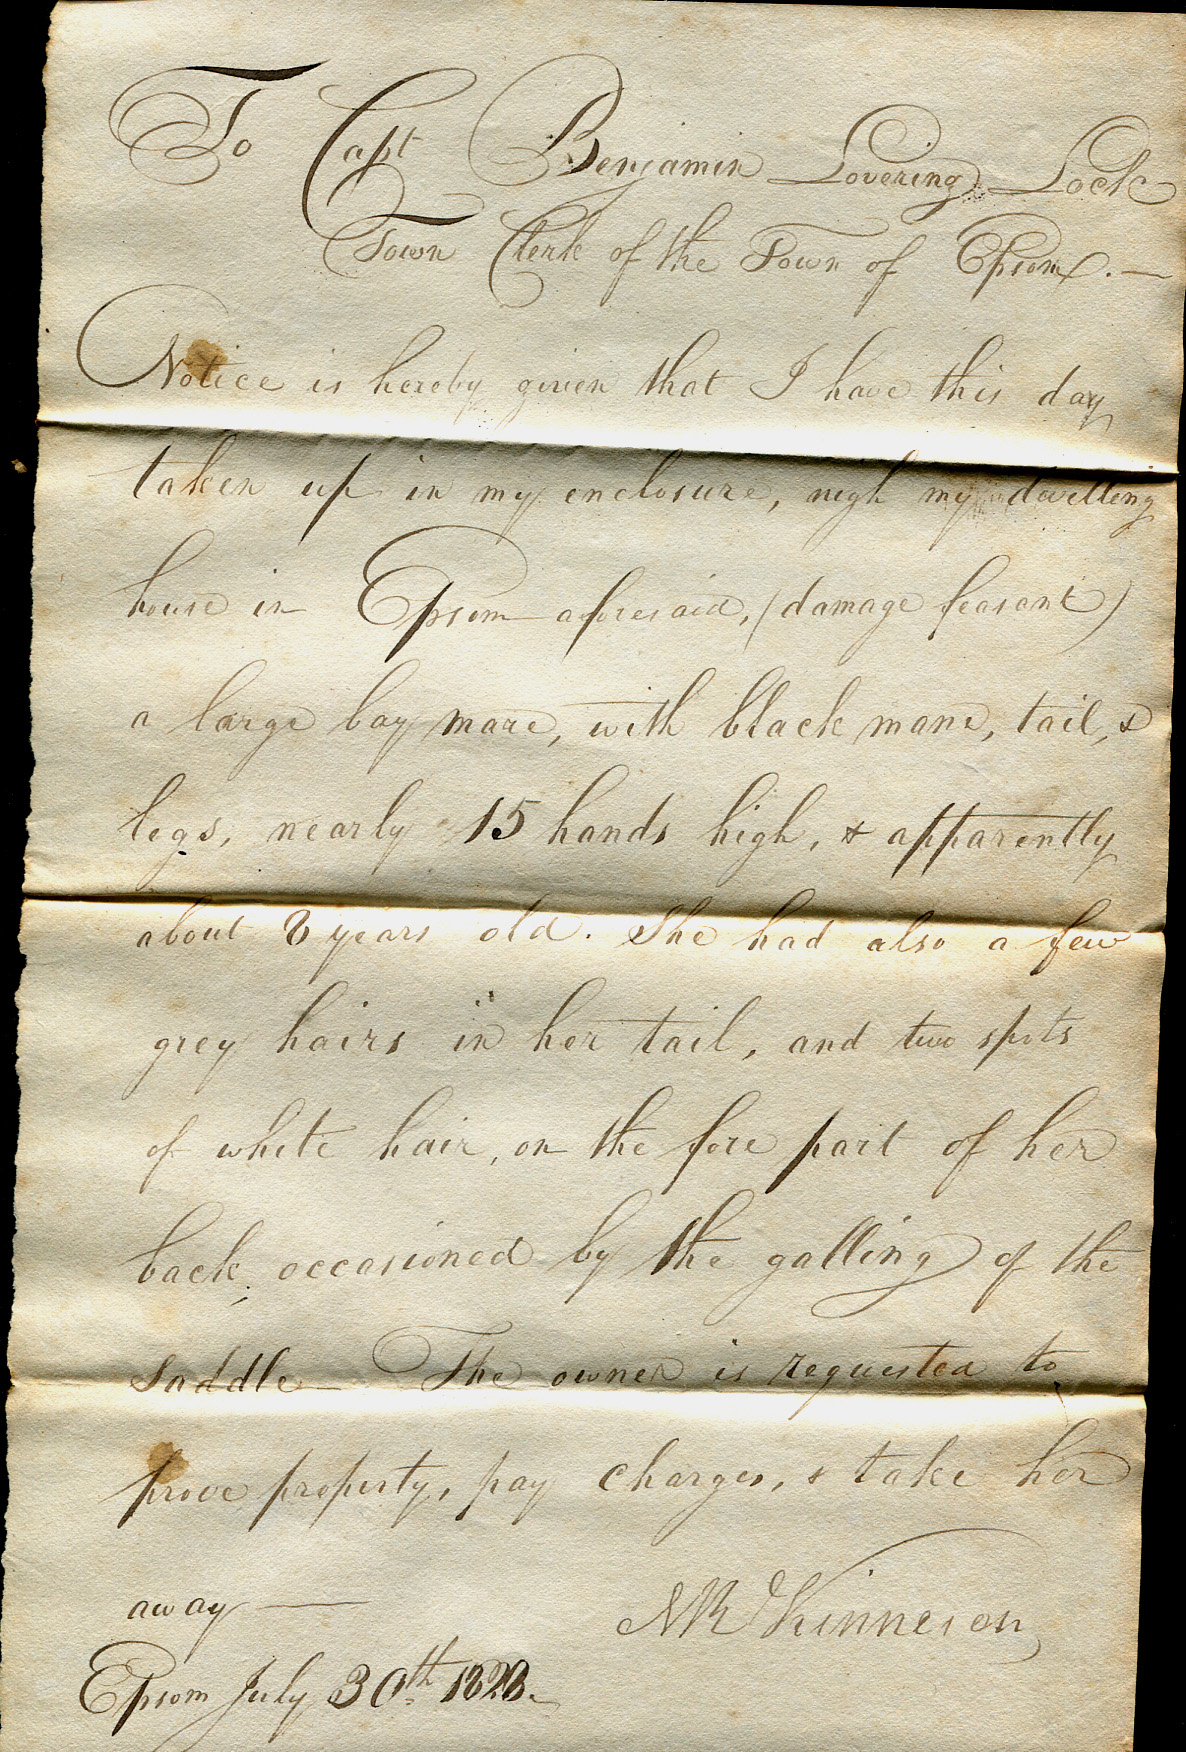 To Capt Benjamin Lovering Lock
Town Clerk of the Town of Epsom. —
Notice is hereby given that I have this day
taken up in my enclosure, nigh my dwelling
house in Epsom aforesaid, (damage feasant)
a large bay mare, with black mane, tail, &
legs, nearly 15 hands high, & apparently
about 8 years old. She had also a few
grey hairs in her tail, and two spots
of white hair, on the fore part of her
back, occasioned by the galling of the
Saddle — The owner is requested to
prove property, pay charges, & take her
away —
Kinneson
Epsom July 30th 1828.